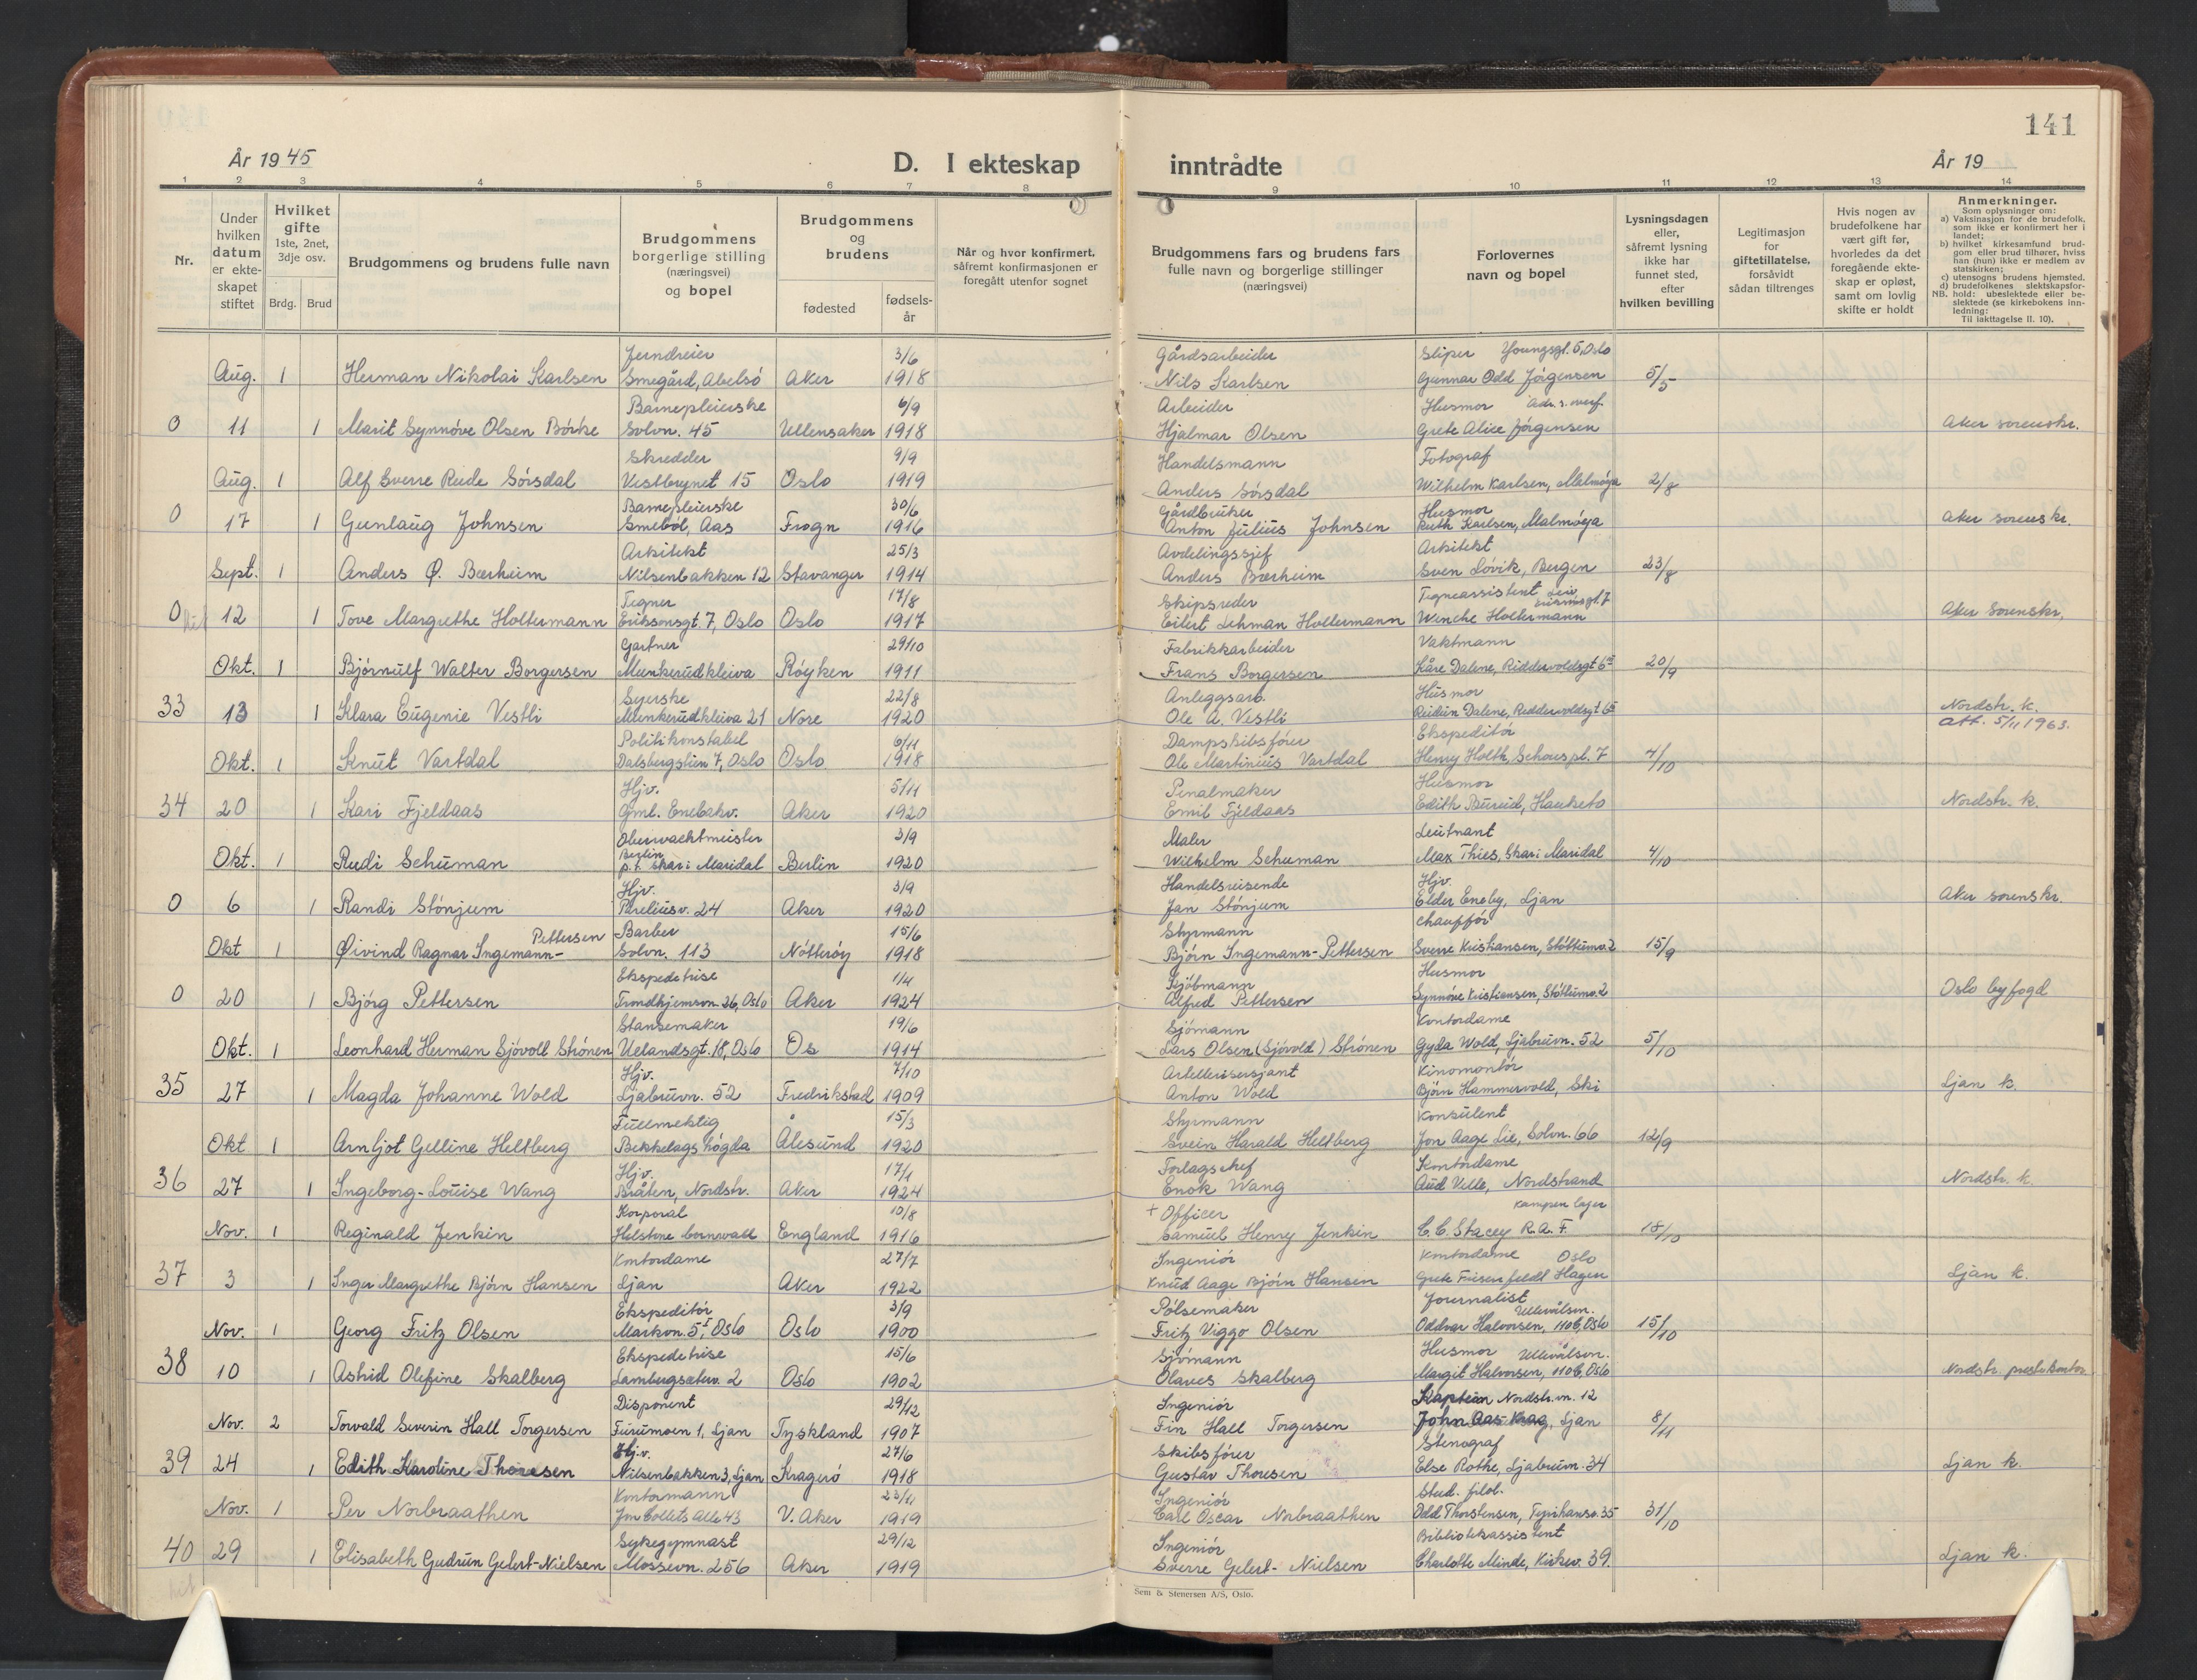 141
År 1945
D. I ekteskap inntrådte
År 19
1 2 3 4 5 6 7 8 9 10 11 12 13 14
Nr.
Under hvilken datum er ekteskapet stiftet
Hvilket gifte 1ste, 2net, 3dje osv.
Brdg. Brud
Brudgommens og brudens fulle navn
Brudgommens borgerlige stilling (næringsvei) og bopel
Brudgommens og brudens
fødested
fødselsår
Når og hvor konfirmert, såfremt konfirmasjonen er foregått utenfor sognet
Brudgommens fars og brudens fars fulle navn og borgerlige stillinger (næringsvei)
Forlovernes navn og bopel
Lysningsdagen eller, såfremt lysning ikke har funnet sted, efter hvilken bevilling
Legitimasjon for giftetillatelse, forsåvidt sådan tiltrenges
Hvis nogen av brudefolkene har vært gift før, hvorledes da det foregående ekteskap er opløst, samt om lovlig skifte er holdt
Anmerkninger.
Som oplysninger om:
a) Vaksinasjon for de brudefolk, som ikke er konfirmert her i landet;
b) hvilket kirkesamfund brudgom eller brud tilhører, hviss han (hun) ikke er medlem av statskirken;
c) utensogns brudens hjemsted.
d) brudefolkenes slektskapsforhold: ubeslektede eller beslektede (se kirkebokens innledning:
NB. Til iakttagelse II. 10).
Jerndreier 3/6 Gårdsarbeider Sliper Youngsgt. 5, Oslo
Aug. 1 Herman Nikolai Karlsen Smegård, Abelsö Aker 1918 Nils Karlsen Gunnar Odd Jörgensen 5/5
Barnepleierske 6/9 Arbeider Husmor Adr. s. overf.
0 11 1 Marit Synnöve Olsen Börke Solvn. 45 Ullensaker 1918 Hjalmar Olsen Grete Alice Jörgensen Aker sorenskr.
Skredder 9/9 Handelsmann Fotograf
Aug. 1 Alf Sverre Rude Sörsdal Vestbrynet 15 Oslo 1919 Anders Sörsdal Wilhelm Karlsen, Malmöya 2/8
Barnepleierske 30/6 Gårdbruker Husmor
0 17 1 Gunlaug Johnsen Smeböl, Aas Frogn 1916 Anton Julius Johnsen Ruth Karlsen, Malmöya Aker sorenskr.
Arkitekt 25/3 Avdelingssjef Arkitekt
Sept. 1 Anders Ø. Bærheim Nilsenbakken 12 Stavanger 1914 Anders Bærheim Sven Lövik, Bergen 23/8
Tegner 17/8 Skipsreder Tegneassistent Leiv Eirikssgt. 7
0 12 1 Tove Margrethe Holtermann Erikssonsgt. 7, Oslo Oslo 1917 Eilert Lehman Holtermann Wenche Holtermann Aker Sorenskr.
Gartner 29/10 Fabrikkarbeider Vaktmann
Okt. 1 Björnulf Walter Borgersen Munkerudkleiva Röyken 1911 Frans Borgersen Kåre Dalene, Riddervoldsgt 6 20/9
Syerske 22/8 Anleggsarb. Husmor
33 13 1 Klara Eugenie Vestli Munkerudkleiva 21 Nore 1920 Ole A. Vestli Reidun Dalene, Riddervoldsgt 6 Nordstr. k.
att. 5/11 1963.
Politikonstabel 6/11 Dampskibsförer Ekspeditör
Okt. 1 Knut Vartdal Dalsbergstien 7, Oslo Oslo 1918 Ole Martinius Vartdal Henry Holth, Schouspl. 7 4/10
Hjv. 5/11 Penalmaker Husmor
34 20 1 Kari Fjeldaas Gml. Enebakv. Aker 1920 Emil Fjeldaas Edith Bureid, Hauketo Nordstr. k.
Oberwachtmeister 3/9 Maler Leutnant
Okt. 1 Rudi Schuman Berlin p.t. Skar i Maridal Berlin 1920 Wilhelm Schuman Max Thies, Skar i Maridal 4/10
Hjv. 3/9 Handelsreisende Hjv.
0 6 1 Randi Stönjum Pareliusv. 24 Aker 1920 Jan Stönjum Elder Eneby, Ljan Aker sorenskr.
Barber 15/6 Styrmann Chaufför
Okt 1 Øivind Ragnar Ingemann-Pettersen Solvn. 113 Nötteröy 1918 Björn Ingemann-Pettersen Sverre Kristiansen, Stöttumv. 2 15/9
Ekspeditrise 1/4 Kjöbmann Husmor
0 20 1 Bjørg Pettersen Trondhjemsvn. 26, Oslo Aker 1924 Alfred Pettersen Synnöve Kristiansen, Stöttumv. 2 Oslo byfogd
Stansemaker 19/6 Sjömann Kontordame
Okt. 1 Leonhard Herman Sjövoll Strönen Uelandsgt. 18, Oslo Os 1914 Lars Olsen (Sjövold) Strönen Gyda Wold, Ljabruvn. 52 5/10
Hjv. 7/10 Artellerisersjant Kinomontör
35 27 1 Magda Johanne Wold Ljabruvn. 52 Fredrikstad 1909 Anton Wold Björn Hammervold, Ski Ljan k.
Fullmektig 15/3 Styrmann Konsulent
Okt 1 Arnljot Gelline Heltberg Bekkelagshögda Ålesund 1920 Svein Harald Heltberg Jon Aage Lie, Solvn. 66 12/9
Hjv. 17/1 Forlagschef Kontordame
36 27 1 Ingeborg-Louise Wang Bråten, Nordstr. Aker 1924 Enok Wang Aud Velle, Nordstrand Nordstr. k.
Korporal 10/8 + Officer Kampen leger
Nov. 1 Reginald Jenkin Helstone Cornwall England 1916 Samuel Henry Jenkin C. C. Stacey R.A.F. 18/10
Kontordame 27/7 Ingeniör Kontordame Oslo
37 3 1 Inger Margrethe Bjørn Hansen Ljan Aker 1922 Knud Aage Bjørn Hansen Grete Friisenfeldt Hagen Ljan k.
Ekspeditör 3/9 Pölsemaker Journalist Ullevålsvn.
Nov. 1 Georg Fritz Olsen Markvn. 5 I, Oslo Oslo 1900 Fritz Viggo Olsen Oddvar Halvorsen, 110b, Oslo 15/10
Ekspeditrise 15/6 Sjömann Husmor Ullevålsvn.
38 10 1 Astrid Olefine Skalberg Lambergsæterv. 2 Oslo 1902 Olaves Skalberg Margit Halvorsen, 110b, Oslo Nordstr. prestekontor
Disponent 29/12 Ingeniör Kaptein Nordstr.vn. 12
Nov. 2 Torvald Severin Hall Torgersen Furumoen 1, Ljan Tyskland 1907 Fin Hall Torgersen John Aas Krag, Ljan 8/11
Hjv. 27/6 Skibsförer Stenograf
39 24 1 Edith Karoline Thoresen Nilsenbakken 3, Ljan Kragerö 1918 Gustav Thoresen Else Rothe, Ljabruvn. 34 Ljan k.
Kontormann 23/11 Ingeniör Stud. filol.
Nov. 1 Per Norbraathen Jon Collets Alle 43 V. Aker 1919 Carl Oscar Norbraathen Odd Thorstensen, Tyrihansv. 35 31/10
Sykegymnast 29/12 Ingeniör Bibliotekassistent
40 29 1 Elisabeth Gudrun Gelert-Nielsen Mossevn. 256 Aker 1919 Sverre Gelert-Nielsen Charlotte Minde, Kirkev. 39. Ljan k.
Sem & Stenersen A/S, Oslo.